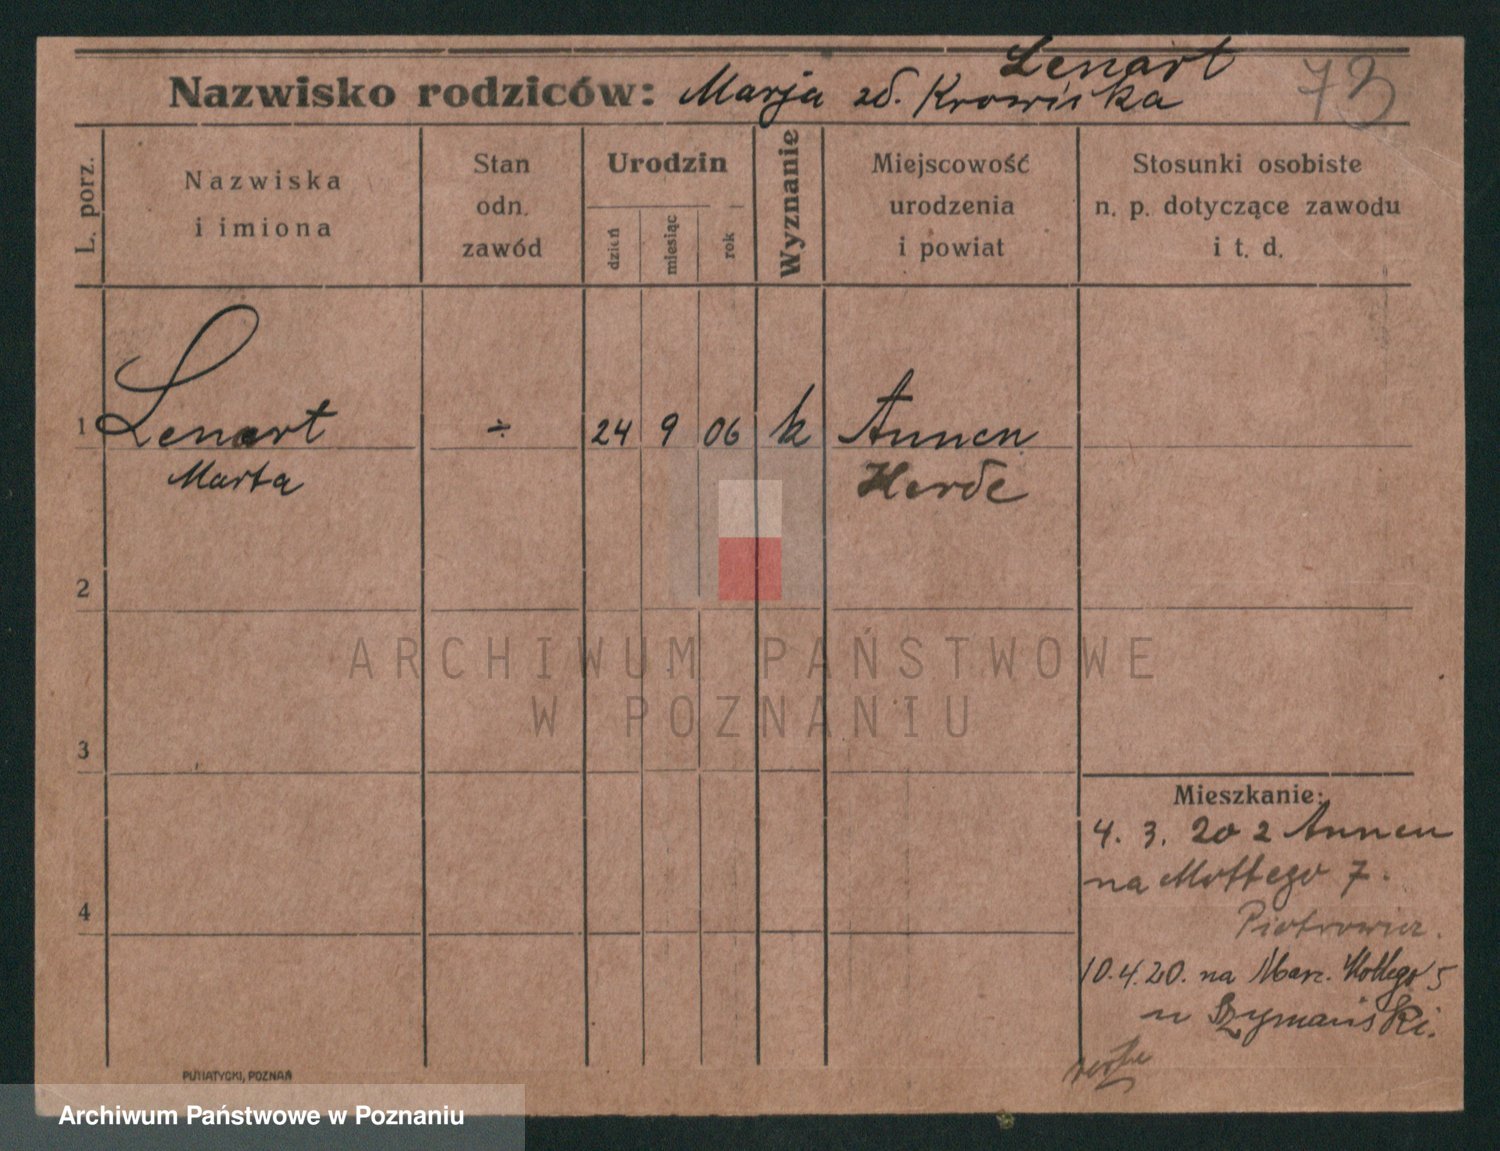 Lenart
Nazwisko rodziców: Marja zd. Krowiska
73
L. porz.
Nazwiska
i imiona
Stan
odn.
zawód
Urodzin
dzień
miesiąc
rok
Wyznanie
Miejscowość
urodzenia
i powiat
Stosunki osobiste
n. p. dotyczące zawodu
i t. d.
1 Lenart ÷ 24 9 06 k Annen
Marta Herde
2
ARCHIWUM PAŃSTWOWE
W POZNANIU
3
Mieszkanie:
4. 3. 20 z Annen
na Mottego 7.
4
Piotrowicz.
10.4.20. na Marc. Mottego 5
u Szymański.
PUTIATYCKI, POZNAŃ
Archiwum Państwowe w Poznaniu